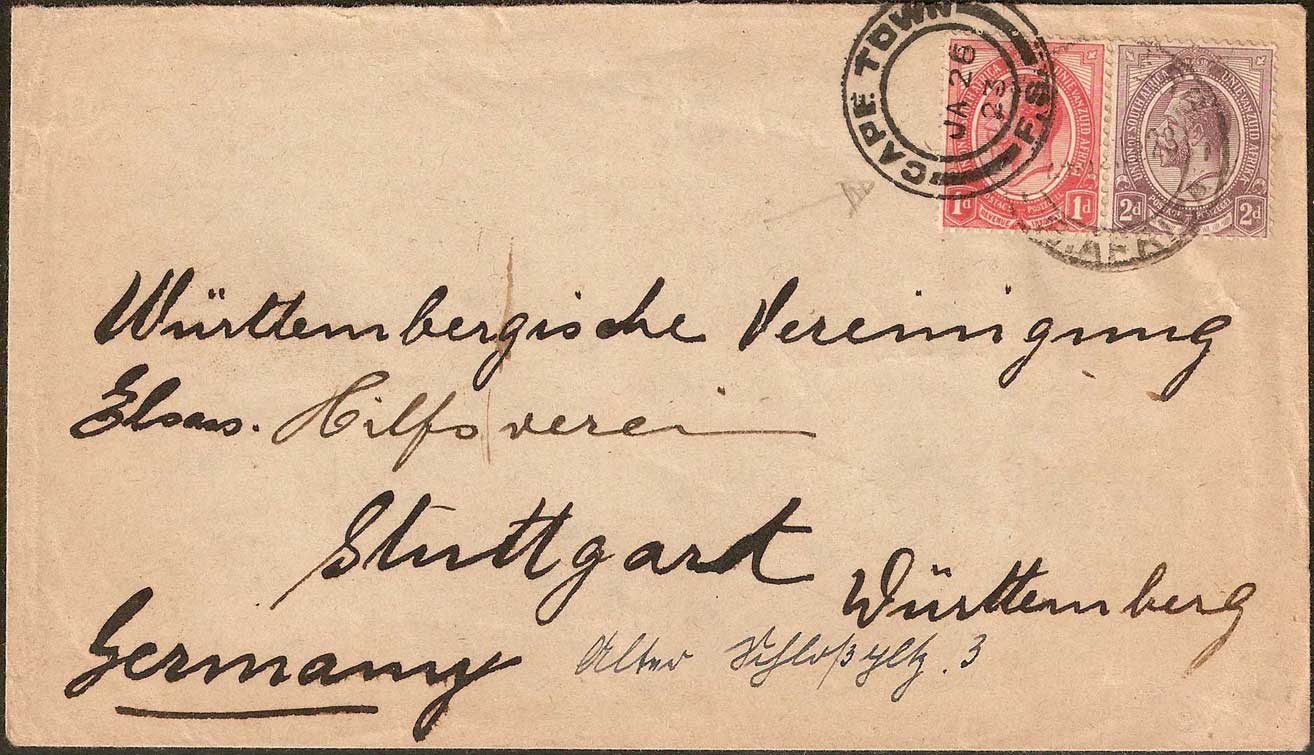 CAPE TOWN F.S.
JA 26
23
UNION OF SOUTH AFRICA UNIE VAN ZUID AFRIKA
POSTAGE POSTZEGEL
REVENUE
1d 1d
UNION OF SOUTH AFRICA UNIE VAN ZUID AFRIKA
POSTAGE POSTZEGEL
2d 2d
Württembergische Vereinigung
Elsass. Hilfsverein
Stuttgart
Württemberg
Germany
Alter Schloßpltz. 3